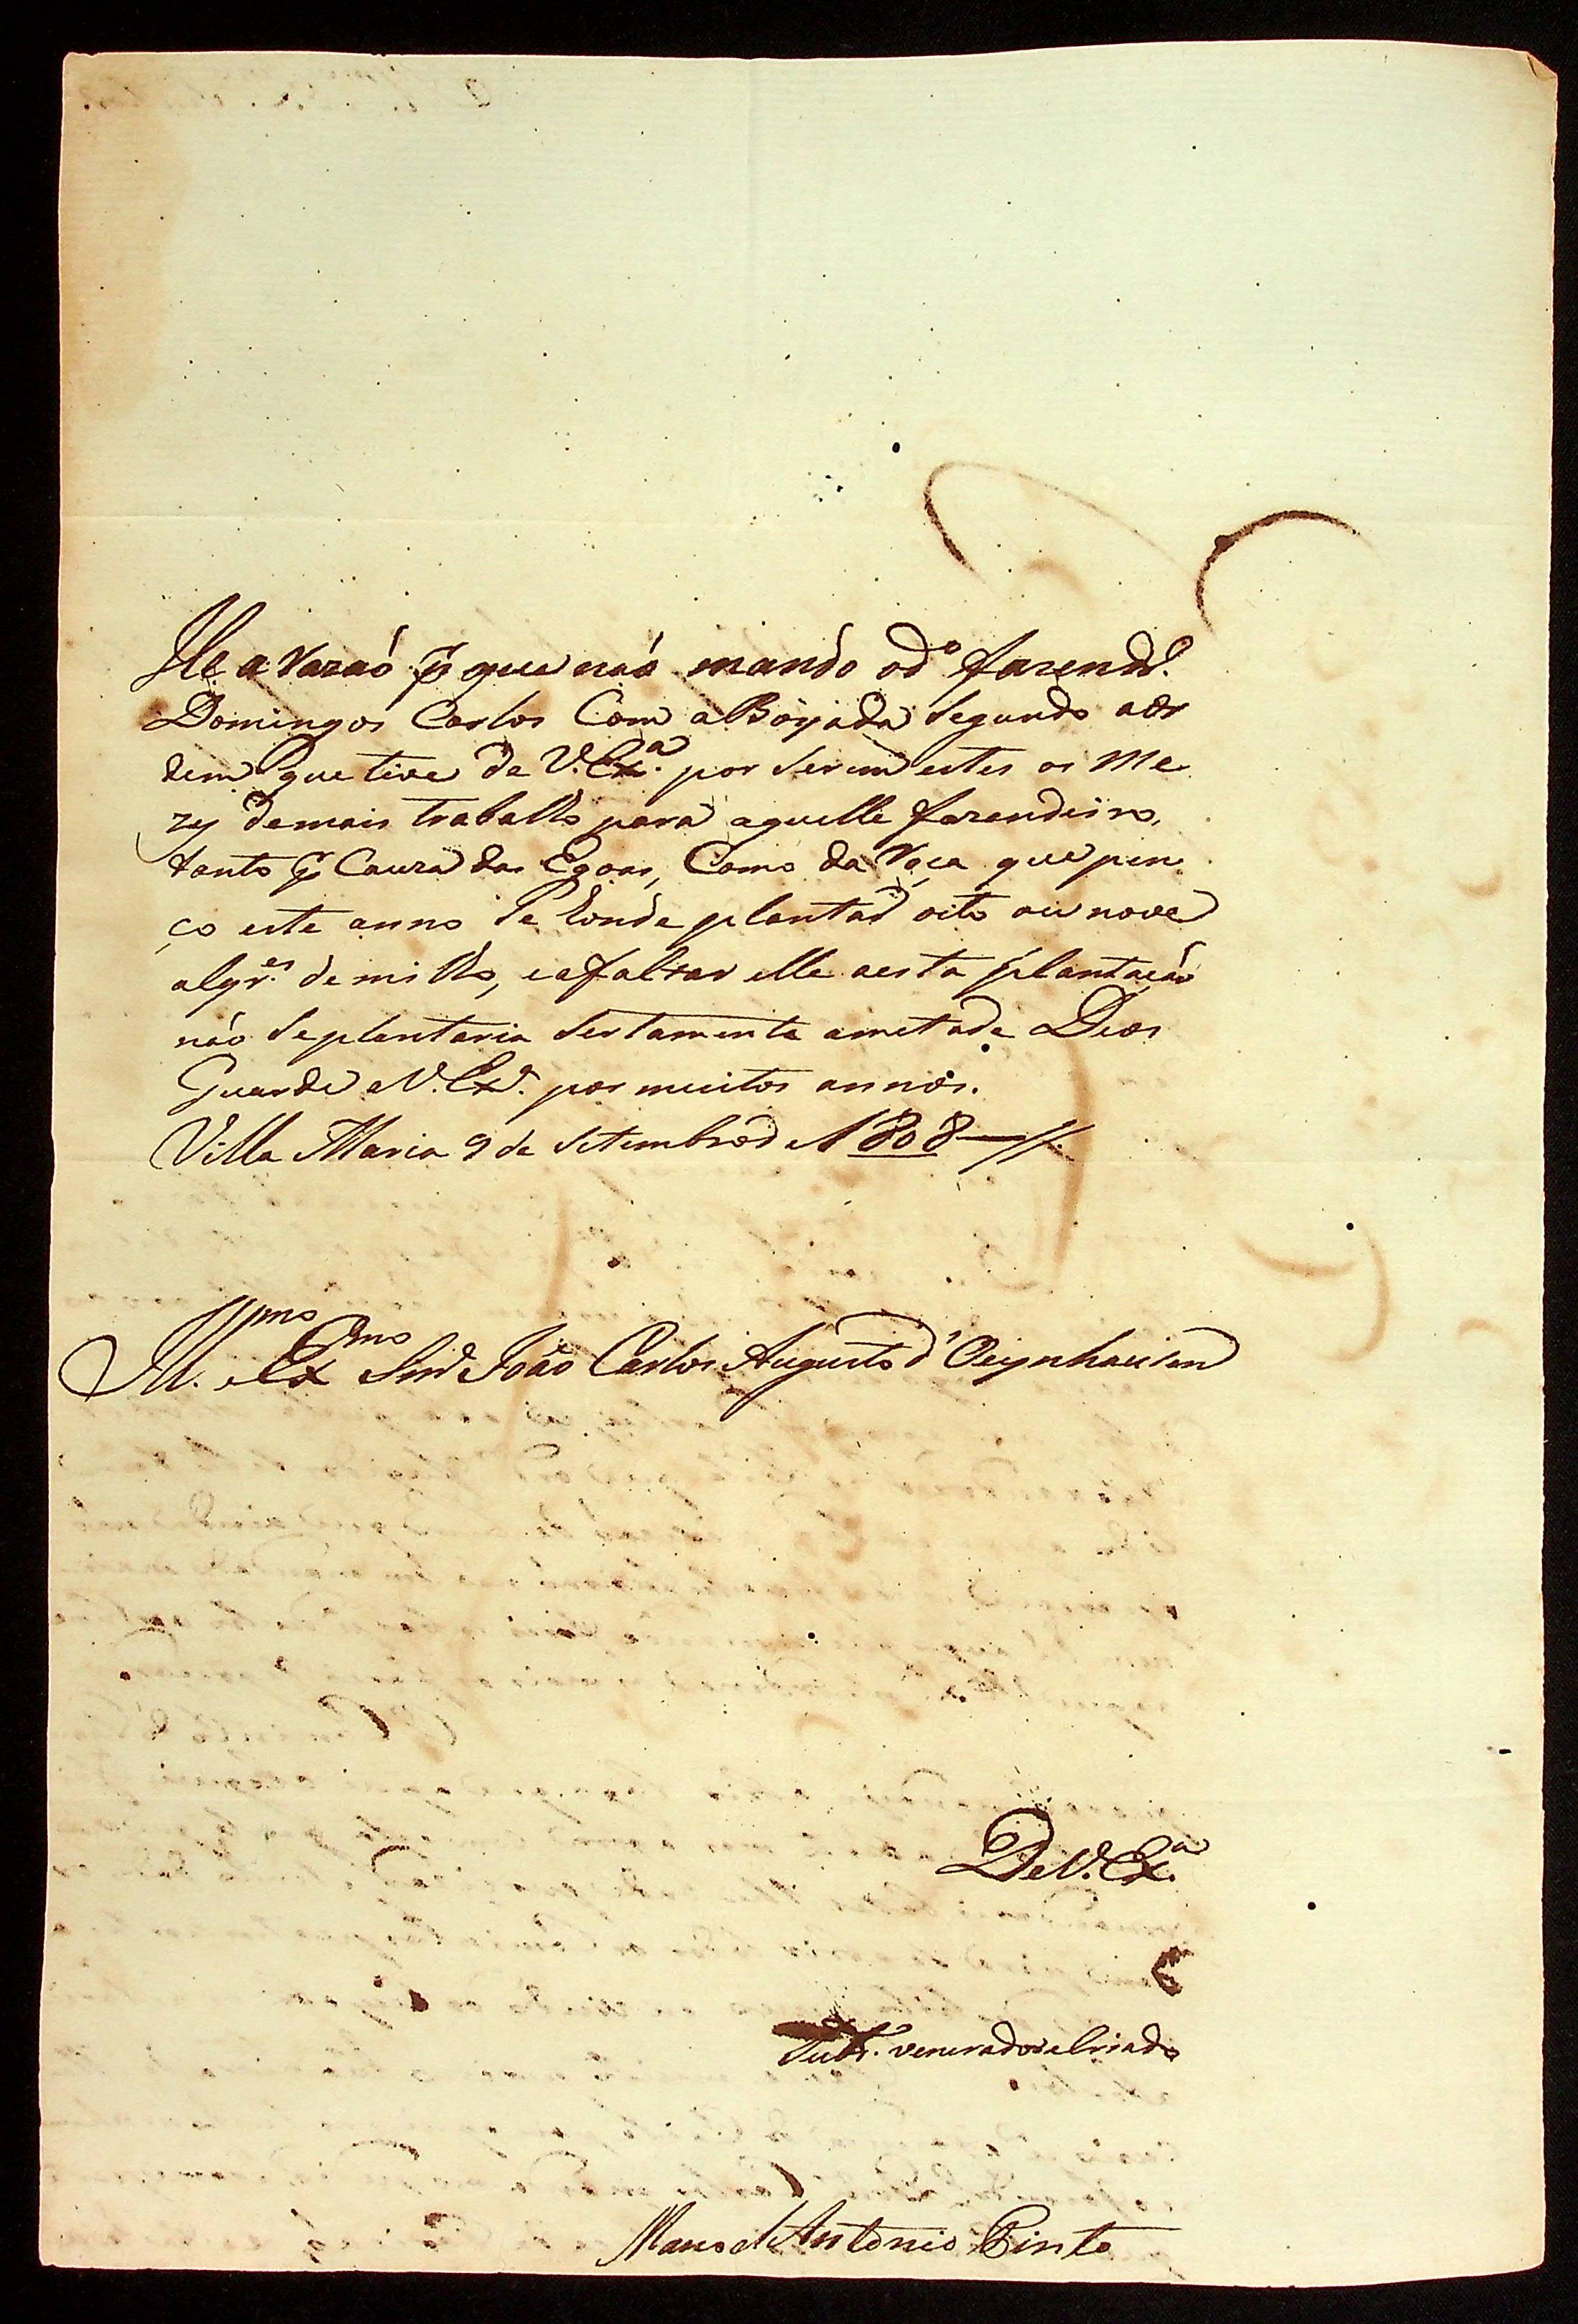 He a Razaó p que naó mando od.º fazend.º
Domingos Carlos Com aBoyada Segundo aOr
dem que tive de V. Ex.ª por Serem estes os Me
zes demais trabalho para aquelle fazendeiro,
tanto p Cauza das Egoas, Como da Roca que pen
ço este anno Se honde plantar oito ou nove
alqr.es de milho, eafaltar elle aesta plantação
não Seplantaria Sertamente ametade Deos
Guarde aV. Ex.ª por muitos annos.
Villa Maria 9 de Setembro de 1808
Ill.mo e Ex.mo Snr. João Carlos Augusto d'Oeynhausen
De V. Ex.ª
Subt. venerador e Criado
Manoel Antonio Pinto